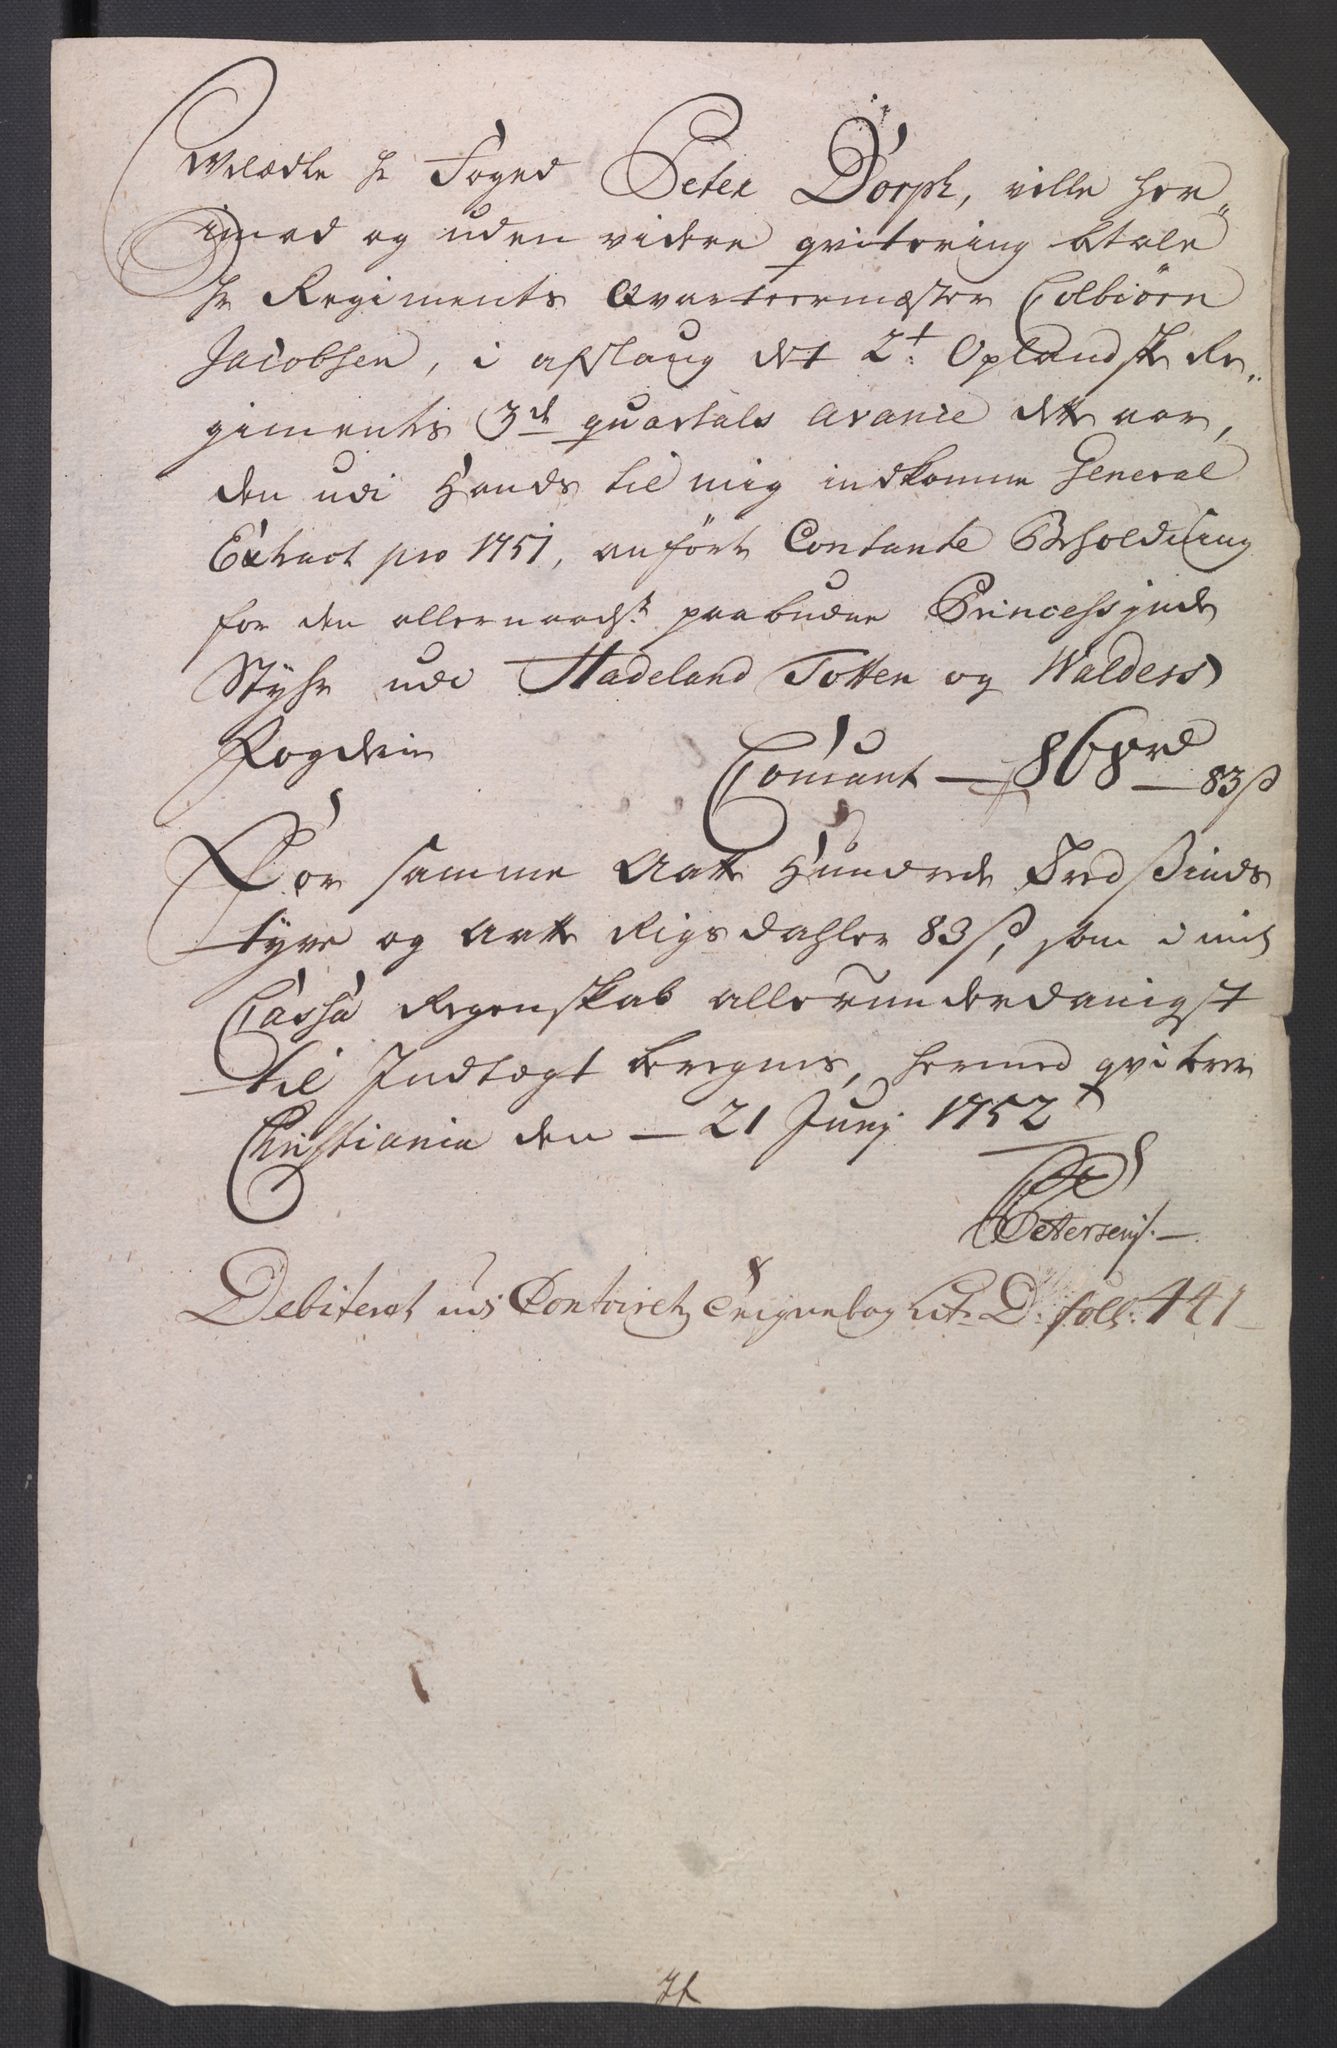 Velædle Hr Foged Peter Dorph, ville her„
imed og uden videre qvitering betale
Hr Regiments Qvarteermæster Colbiörn
Jacobsen, i afslaug det 2t: Oplandske Re„
giments 3de quartals Avance
den udi Hends til mig indkomne General
Extract pro 1751, anförte Contante Beholdning
for den allernaadst paabudne Princessinde
Styhr udi Hadeland Totten og Walders
Fogderie
Courant — 868 rd — 83 ß
For samme Aatte Hundrede Tred Sinds
tyve og Aatte Rigsdahler 83 ß, som i mit
Cassa Regenskab allerunderdanigst
til Indtægt beregnes, hermed qviterer
Christiania den — 21 Junj 1752
Petersen
Debiteret udi Contoiret Lit: D: foll: 441